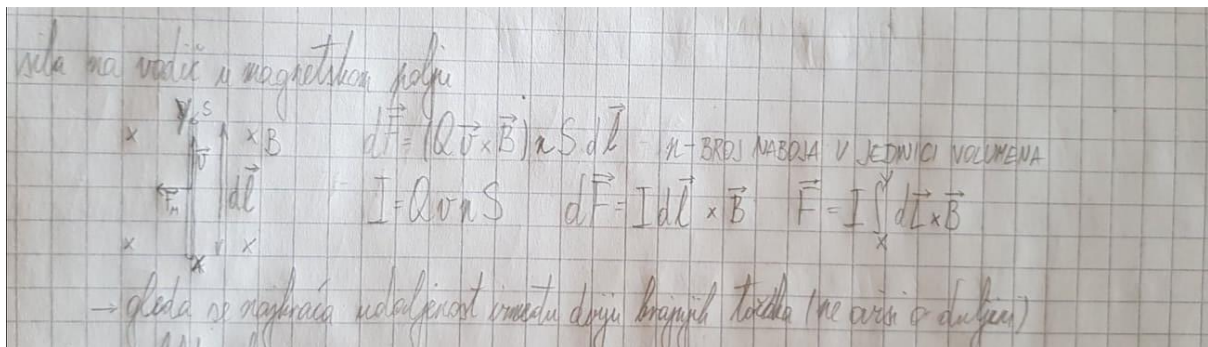 sila na vodič u magnetskom polju
Y S
x x B
v⃗
F⃗m dl⃗
x x
X
dF⃗ = (Qv⃗ × B⃗) n S dl⃗ n - BROJ NABOJA U JEDNICI VOLUMENA
I = Q v n S dF⃗ = I dl⃗ × B⃗ F⃗ = I ∫_X^Y dl⃗ × B⃗
→ gleda se najkraća udaljenost između dviju krajnjih točaka (ne ovisi o duljini)